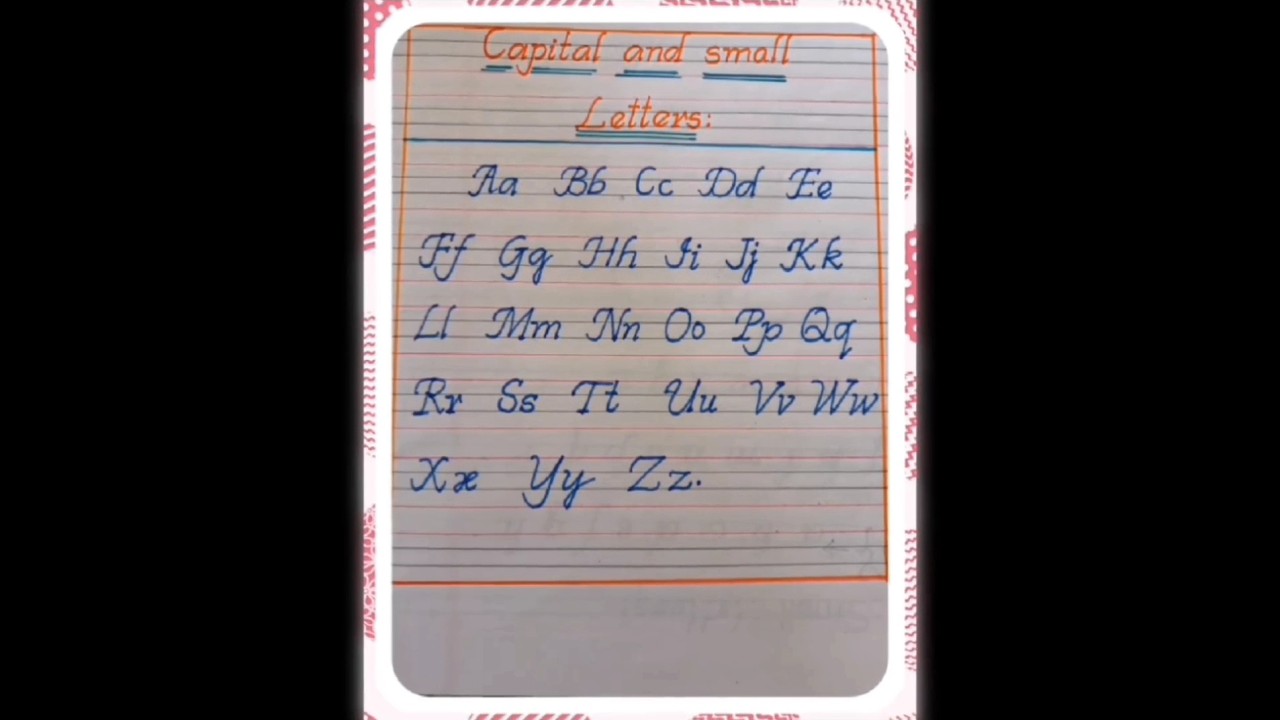 Capital and small
Letters:
Aa Bb Cc Dd Ee
Ff Gg Hh Ii Jj Kk
Ll Mm Nn Oo Pp Qq
Rr Ss Tt Uu Vv Ww
Xx Yy Zz.